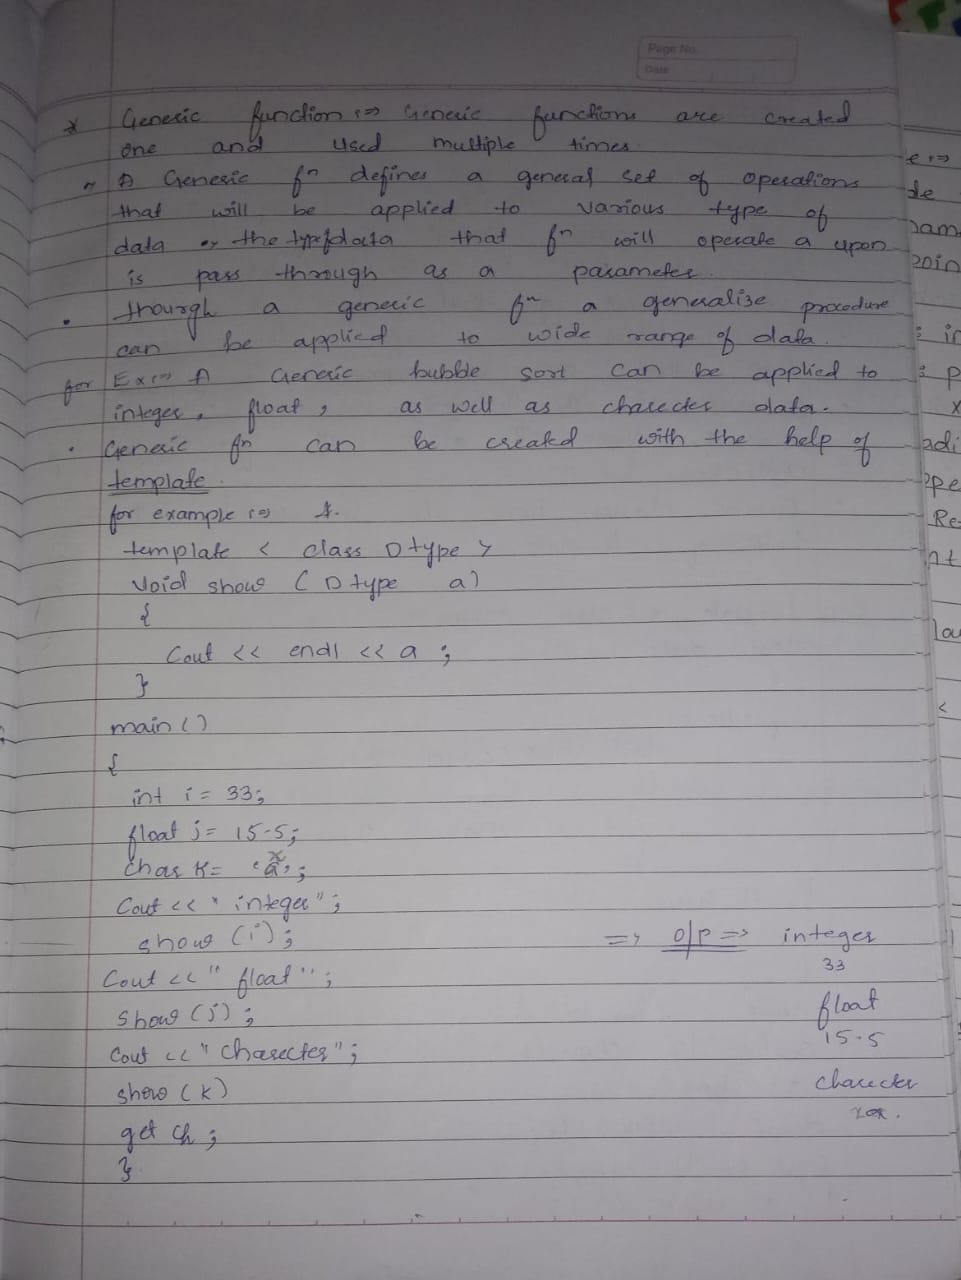 Page No.
Date
* Generic function => Generic functions are created
one and used multiple times.
A Generic fn defines a general set of operations
that will be applied to various type of
data or the type of data that fn will operate a upon
is pass through as a parameter.
• thourgh a generic fn a generalise procedure
can be applied to wide range of data.
for Ex => A Generic bubble sort can be applied to
integer, float, as well as charecter data.
• Generic fn can be created with the help of
template.
for example =>
template < class Dtype >
void show ( Dtype a)
{
Cout << endl << a ;
}
main ()
{
int i = 33;
float j = 15.5;
char k = 'x';
Cout << " integer" ;
show (i) ;
=> o/p => integer
33
Cout << " float " ;
float
show (j) ;
15.5
Cout << " charecter" ;
show (k)
charecter
get ch ;
}